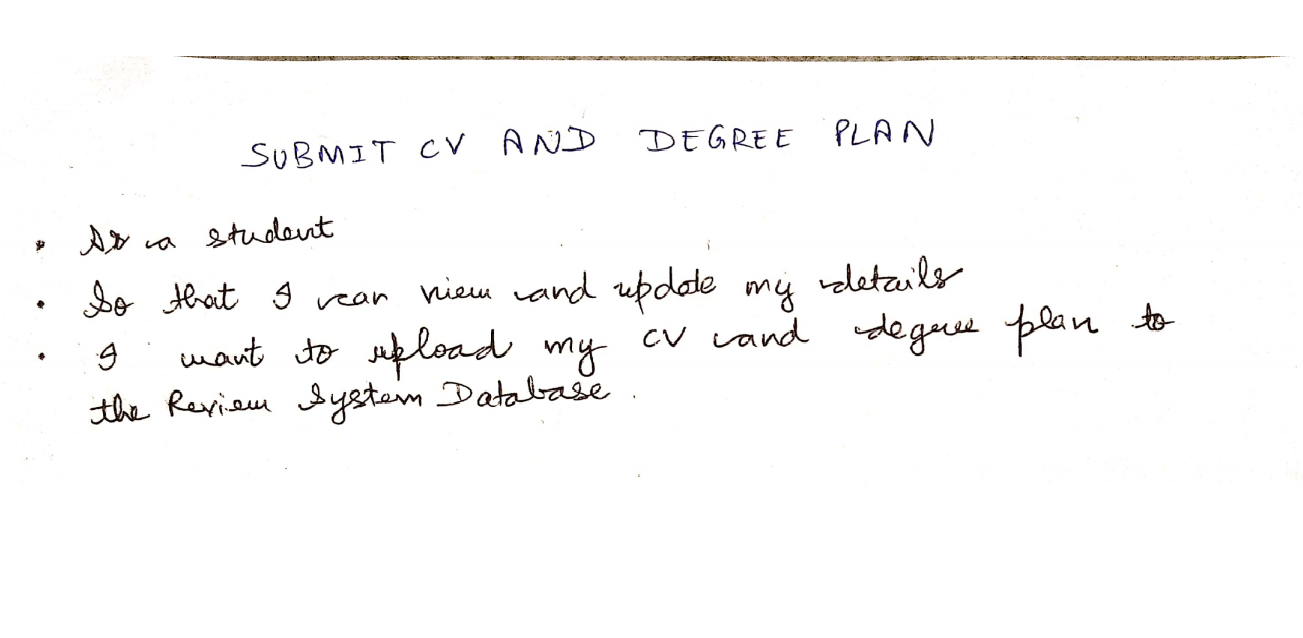 SUBMIT CV AND DEGREE PLAN
• As a student
• So that I can view and update my details
• I want to upload my CV and degree plan to
the Review System Database.